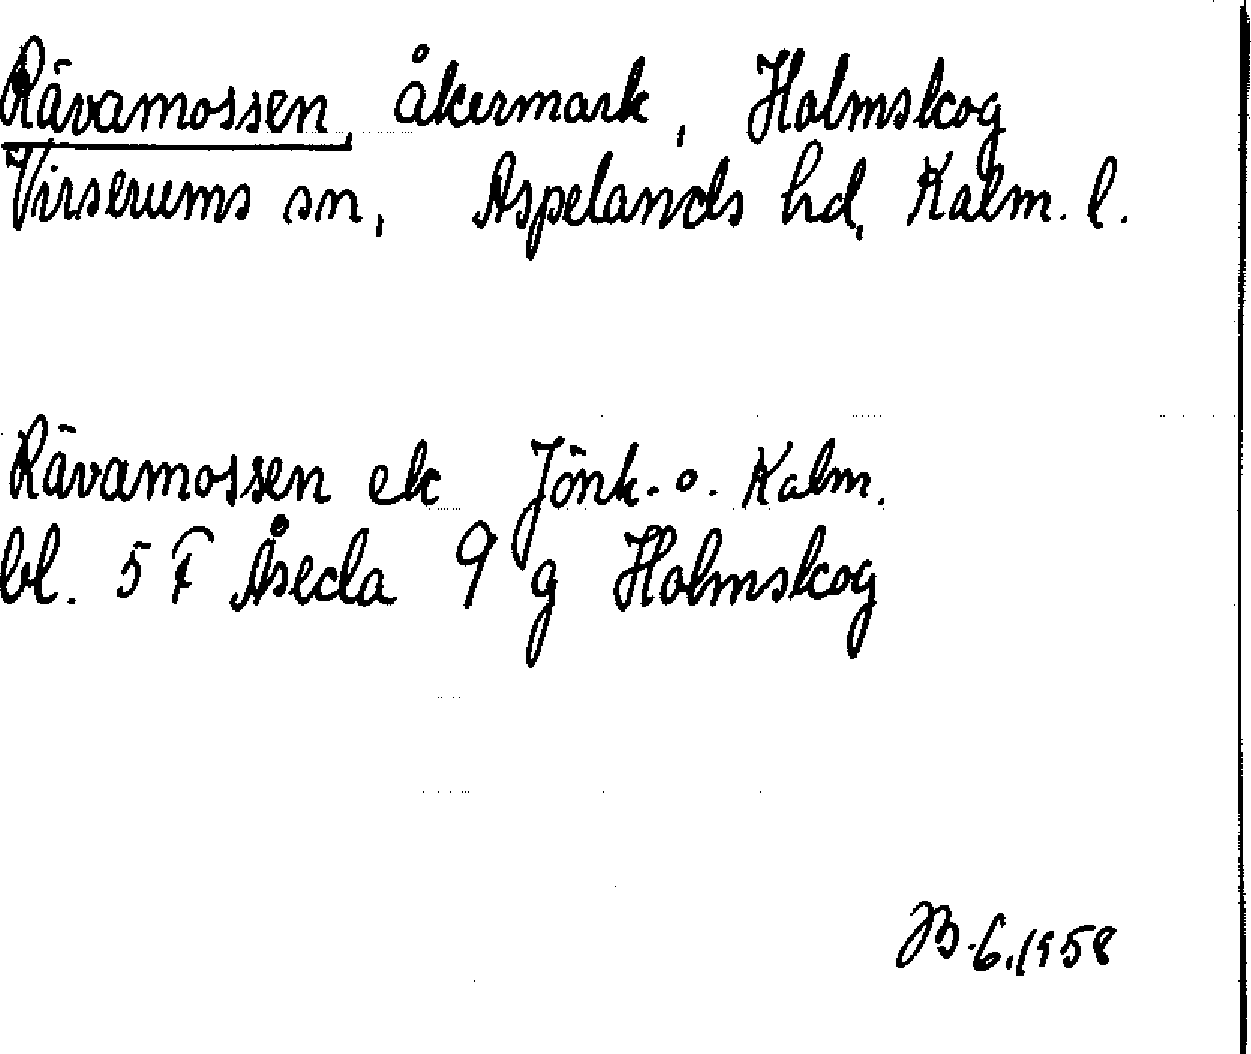 Rävamossen, åkermark, Holmskog
Virserums sn, Aspelands hd, Kalm. l.
Rävamossen ek Jönk. o. Kalm.
bl. 5 F Åseda 9 g Holmskog
JB. 6. 1958